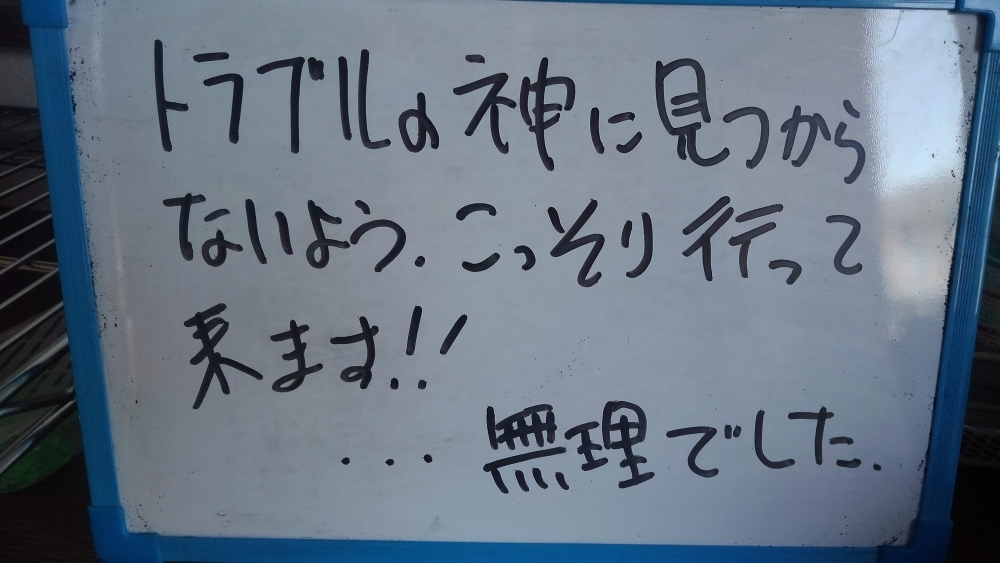 トラブルの神に見つから
ないよう.こっそり行って
来ます!!
...無理でした.